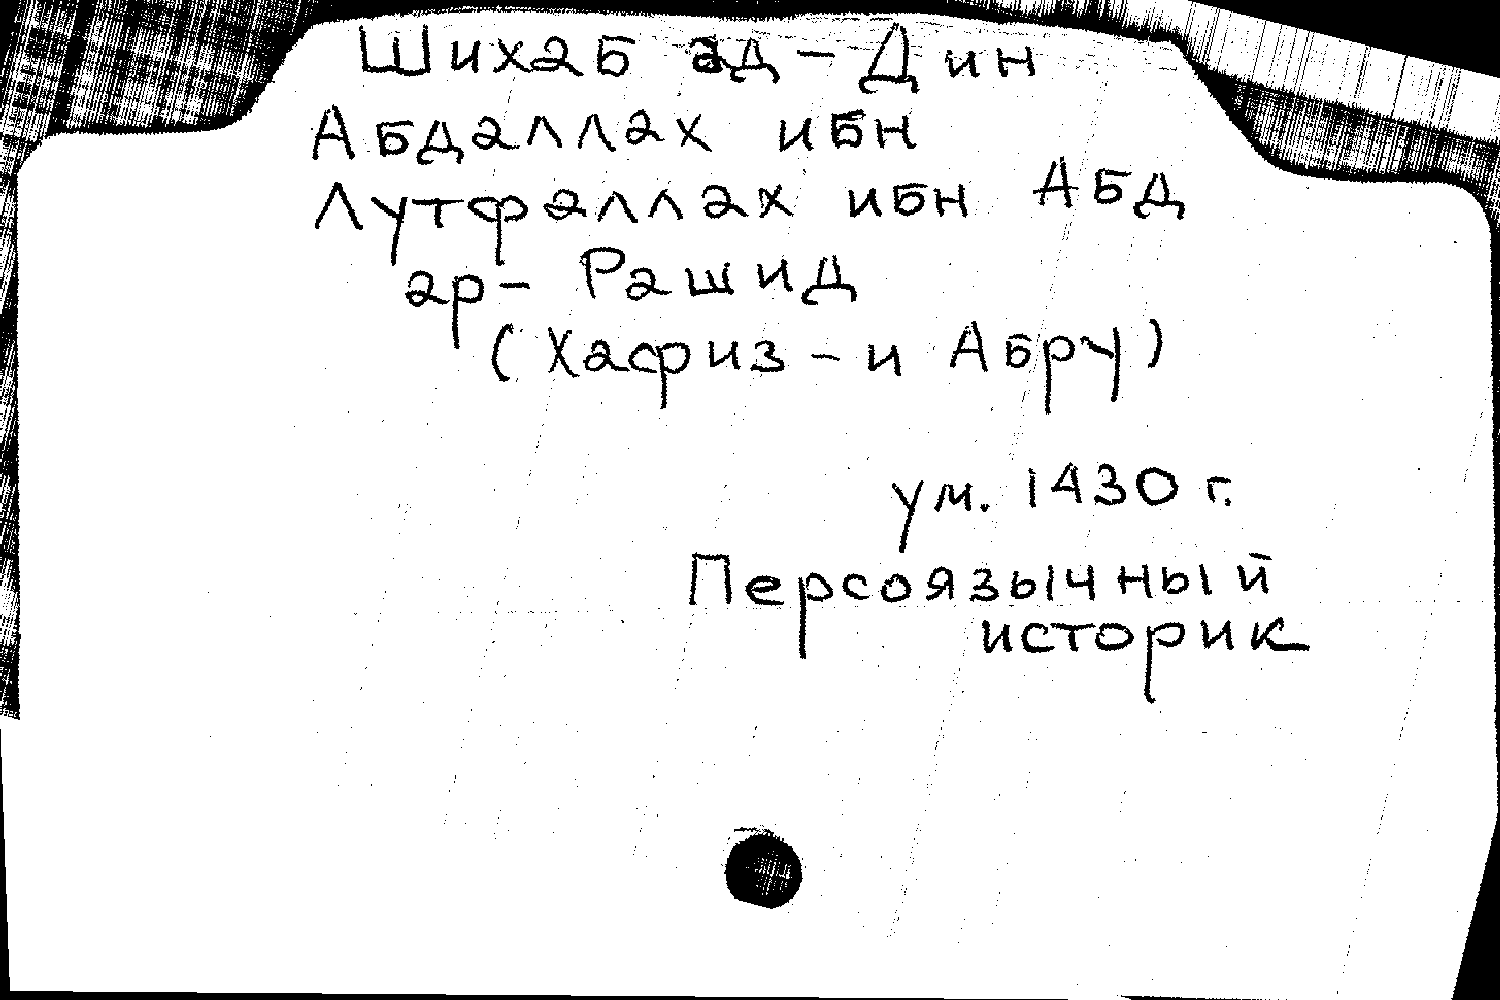 Шихаб ад-Дин
Абдаллах ибн
Лутфаллах ибн Абд
ар-Рашид
(Хафиз-и Абру)
ум. 1430 г.
Персоязычный
историк